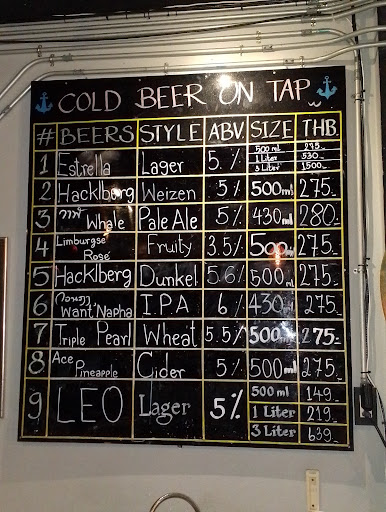 COLD BEER ON TAP
# BEERS STYLE ABV. SIZE THB.
1 Estrella Lager 5.% 500 ml 275.-
1 Liter 530.-
3 Liter 1500.-
2 Hacklberg Weizen 5% 500ml 275.-
3 Whale Pale Ale 5% 430ml 280.-
4 Limburgse Rosé Fruity 3.5% 500ml 275.-
5 Hacklberg Dunkel 5.6% 500ml 275.-
6 Want'Napha I.P.A 6% 430ml 275.-
7 Triple Pearl Wheat 5.5% 500ml 275.-
8 Ace Pineapple Cider 5% 500ml 275.-
9 LEO Lager 5% 500 ml 149.-
1 Liter 219.-
3 Liter 639.-